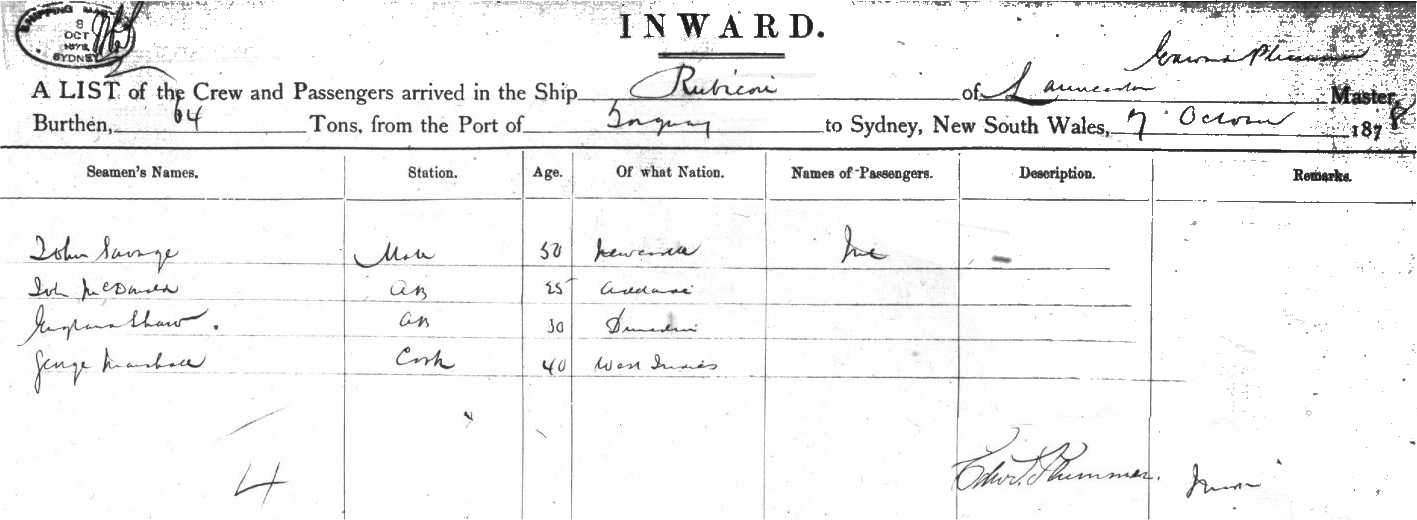 SHIPPING MA
8
OCT
1878
SYDNEY
INWARD.
Edward Plummer
A LIST of the Crew and Passengers arrived in the Ship Rubicon of Launceston Master,
Burthen, 64 Tons, from the Port of Torquay to Sydney, New South Wales, 7 October 1878
Seamen's Names. Station. Age. Of what Nation. Names of Passengers. Description. Remarks.
John Savage Mate 50 Newcastle
John McDonald AB 25
Shaw. AB 30 Dunedin
George Marshall Cook 40 West Indies
4
Edwd. Plummer.